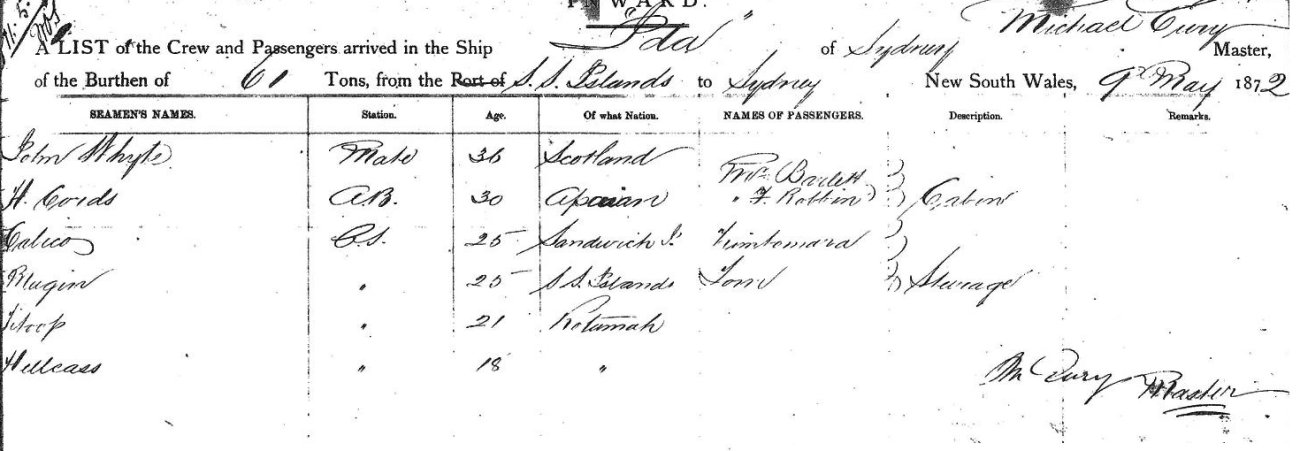 INWARD.
A LIST of the Crew and Passengers arrived in the Ship "Ida" of Sydney Michael Master,
of the Burthen of 61 Tons, from the Port of S. S. Islands to Sydney New South Wales, 9th May 1872
SEAMEN'S NAMES. Station. Age. Of what Nation. NAMES OF PASSENGERS. Description. Remarks.
John Whyte Mate 36 Scotland
Mr. Bartlett
H. Cords A.B. 30 " F. Robbin Cabin
Calico O.S. 25 Sandwich I.
" 25 S. S. Islands Tom Steerage
" 21 Rotumah
" 18 "
M Master